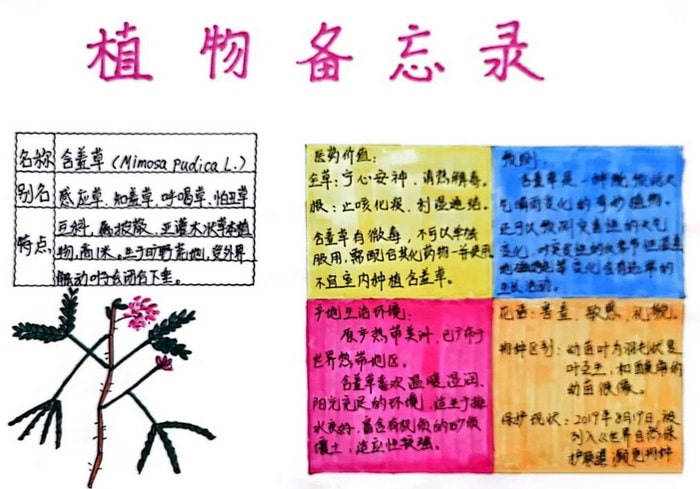 植物备忘录
名称 含羞草(Mimosa Pudica L.)
别名 感应草、知羞草、呼喝草、怕丑草
特点 豆科,属披散、亚灌木状草本植
物,高1米。生于旷野荒地,受外界
触动叶子会闭合下垂。
医药价值:
全草:宁心安神、清热解毒。
根:止咳化痰、利湿通络。
含羞草有微毒,不可以单独
服用,需配合其他药物一并使用
不宜室内种植含羞草。
预测:
含羞草是一种能预兆天
气晴雨变化的奇妙植物。
还可以预测灾害
变化,对
生长活动。
产地生活环境:
原产热带美洲,已广布于
世界热带地区。
含羞草喜欢温暖湿润、
阳光充足的环境,适生于排
水良好,富含有机质的砂质
壤土,适应性较强。
花语:害羞、敏感、礼貌。
物种区别:幼苗叶为羽毛状复
叶互生,和
幼苗很像。
保护现状:2019年3月19日,被
列入《世界自然保
护联盟》濒危物种